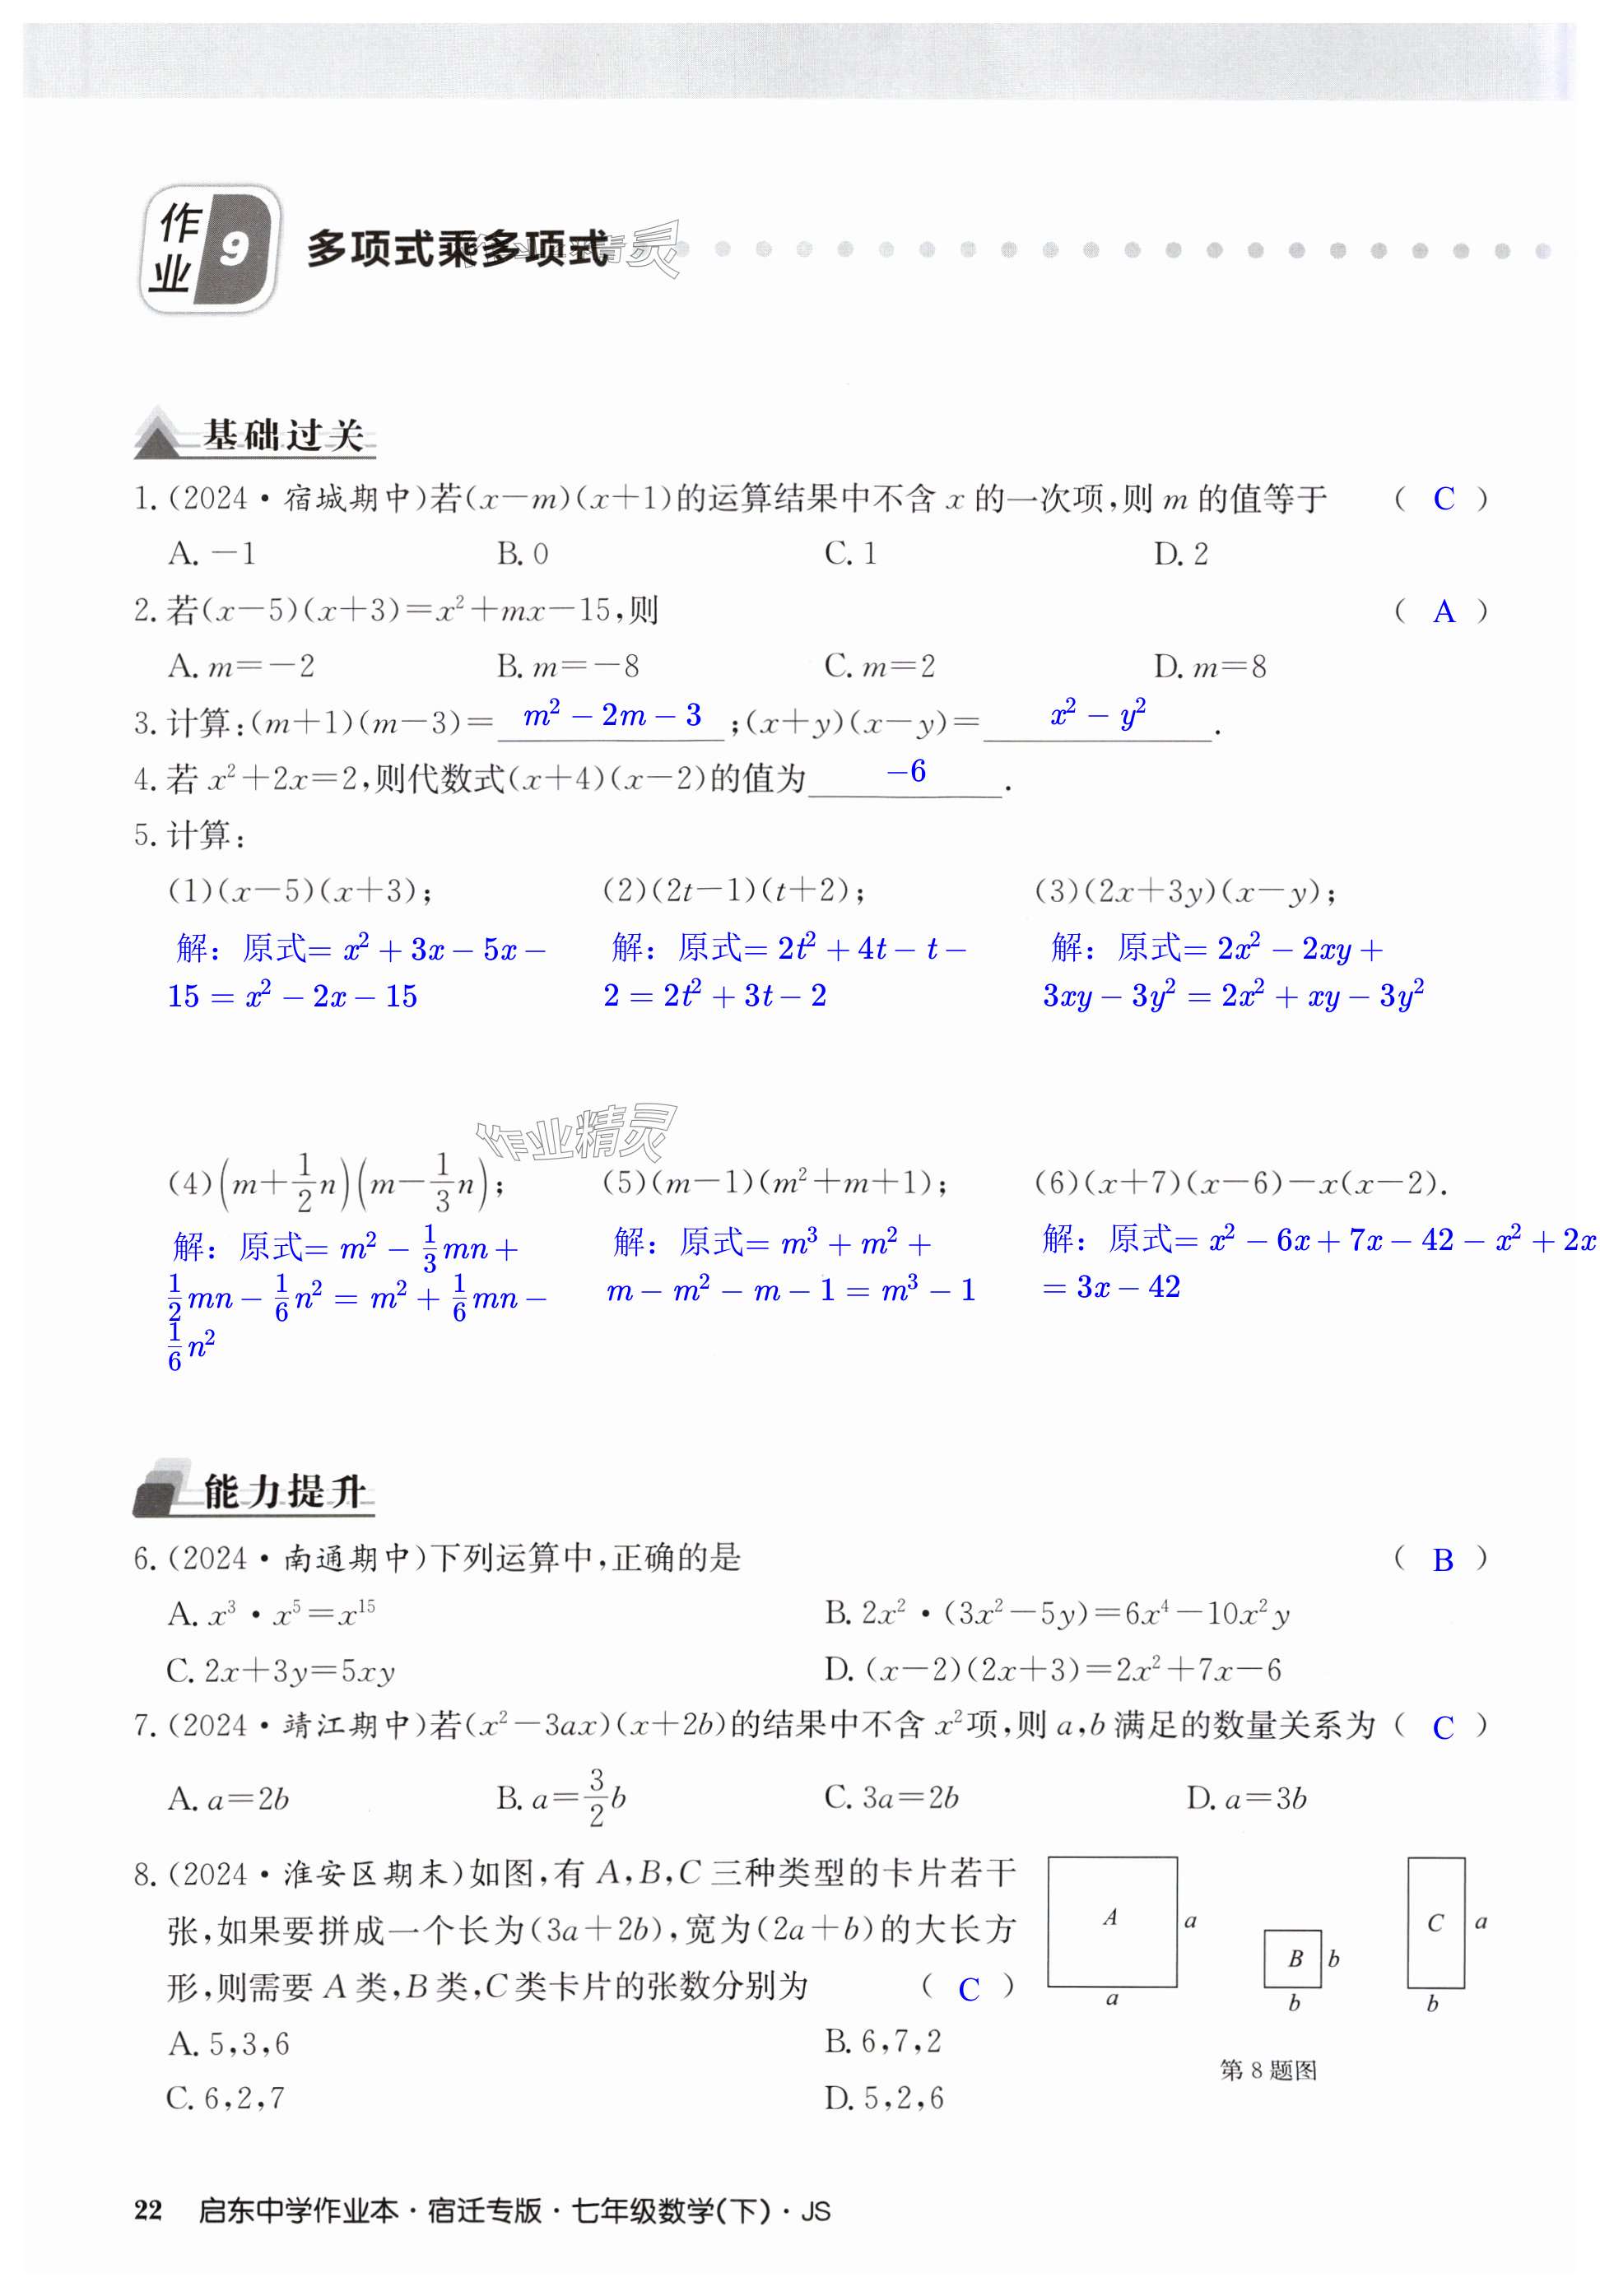 作业 9 多项式乘多项式
作业精灵
基础过关
1. (2024·宿城期中)若(x－m)(x＋1)的运算结果中不含 x 的一次项,则 m 的值等于 ( C )
A. －1 B. 0 C. 1 D. 2
2. 若(x－5)(x＋3)＝x²＋mx－15,则 ( A )
A. m＝－2 B. m＝－8 C. m＝2 D. m＝8
3. 计算:(m＋1)(m－3)＝ m² − 2m − 3 ;(x＋y)(x－y)＝ x² − y² .
4. 若 x²＋2x＝2,则代数式(x＋4)(x－2)的值为 −6 .
5. 计算:
(1)(x－5)(x＋3); (2)(2t－1)(t＋2); (3)(2x＋3y)(x－y);
解：原式= x² + 3x − 5x − 解：原式= 2t² + 4t − t − 解：原式= 2x² − 2xy +
15 = x² − 2x − 15 2 = 2t² + 3t − 2 3xy − 3y² = 2x² + xy − 3y²
作业精灵
(4)(m＋1/2n)(m－1/3n); (5)(m－1)(m²＋m＋1); (6)(x＋7)(x－6)－x(x－2).
解：原式= m² − 1/3mn + 解：原式= m³ + m² + 解：原式= x² − 6x + 7x − 42 − x² + 2x
1/2mn − 1/6n² = m² + 1/6mn − m − m² − m − 1 = m³ − 1 = 3x − 42
1/6n²
能力提升
6. (2024·南通期中)下列运算中,正确的是 ( B )
A. x³·x⁵＝x¹⁵ B. 2x²·(3x²－5y)＝6x⁴－10x²y
C. 2x＋3y＝5xy D. (x－2)(2x＋3)＝2x²＋7x－6
7. (2024·靖江期中)若(x²－3ax)(x＋2b)的结果中不含 x²项,则 a,b 满足的数量关系为 ( C )
A. a＝2b B. a＝3/2b C. 3a＝2b D. a＝3b
8. (2024·淮安区期末)如图,有 A,B,C 三种类型的卡片若干
张,如果要拼成一个长为(3a＋2b),宽为(2a＋b)的大长方
形,则需要 A 类,B 类,C 类卡片的张数分别为 ( C )
A. 5,3,6 B. 6,7,2
C. 6,2,7 D. 5,2,6
A a a
B b b
C a b
第 8 题图
22 启东中学作业本·宿迁专版·七年级数学(下)·JS